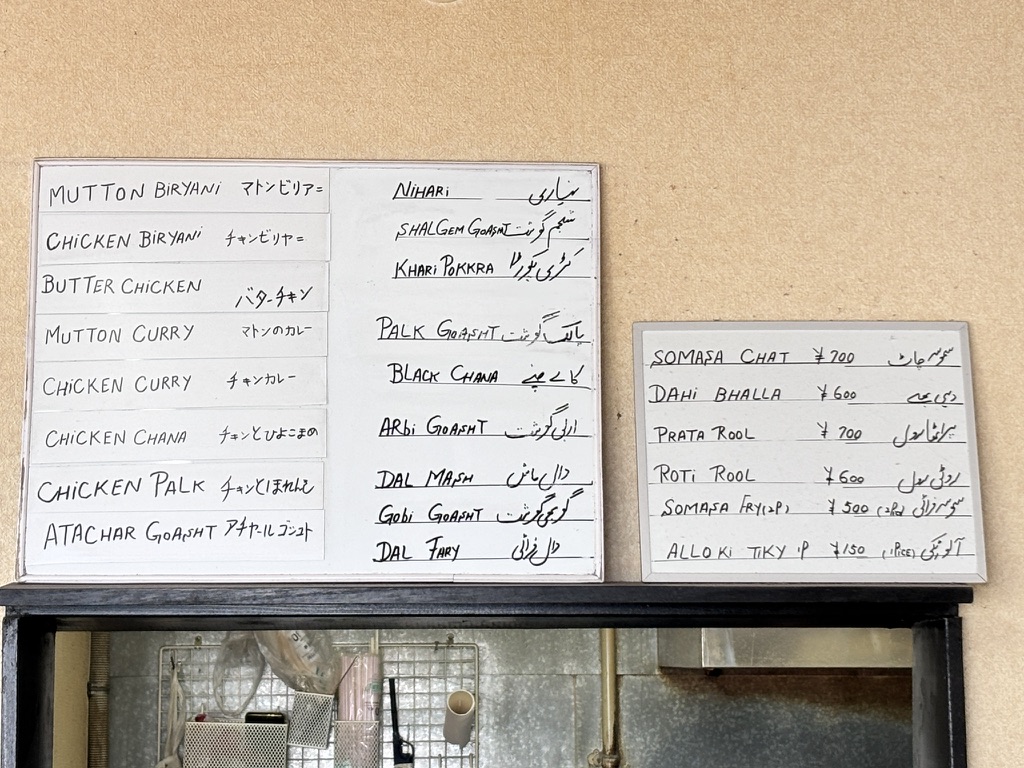 MUTTON BIRYANI マトンビリア=
CHICKEN BIRYANI チキンビリヤ=
BUTTER CHICKEN バターチキン
MUTTON CURRY マトンのカレー
CHICKEN CURRY チキンカレー
CHICKEN CHANA チキンとひよこまめ
CHICKEN PALK チキンとほれんそ
ATACHAR GOASHT アチャールゴシュト
NIHARI نہاری
SHALGEM GOASHT شلجم گوشت
KHARI POKKRA کڑی پکوڑا
PALK GOASHT پالک گوشت
BLACK CHANA کالے چنے
ARBI GOASHT اربی گوشت
DAL MASH دال ماش
GOBI GOASHT گوبھی گوشت
DAL FARY دال فرائی
SOMASA CHAT ¥700 سموسہ چاٹ
DAHI BHALLA ¥600 دہی بھلے
PRATA ROOL ¥700 پراٹھا رول
ROTI ROOL ¥600 روٹی رول
SOMASA FRY(2P) ¥500 سموسہ فرائی
ALLO KI TIKY 1P ¥150 (1PICE) آلو ٹکی